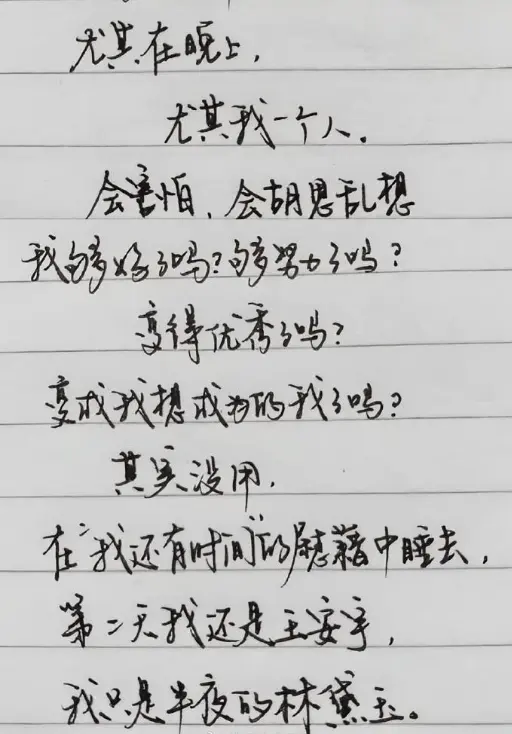 尤其在晚上，
尤其我一个人。
会害怕，会胡思乱想
我够好了吗？够努力了吗？
变得优秀了吗？
变成我想成为的我了吗？
其实没用，
在“我还有时间”的慰藉中睡去，
第二天我还是王安宇，
我只是半夜的林黛玉。